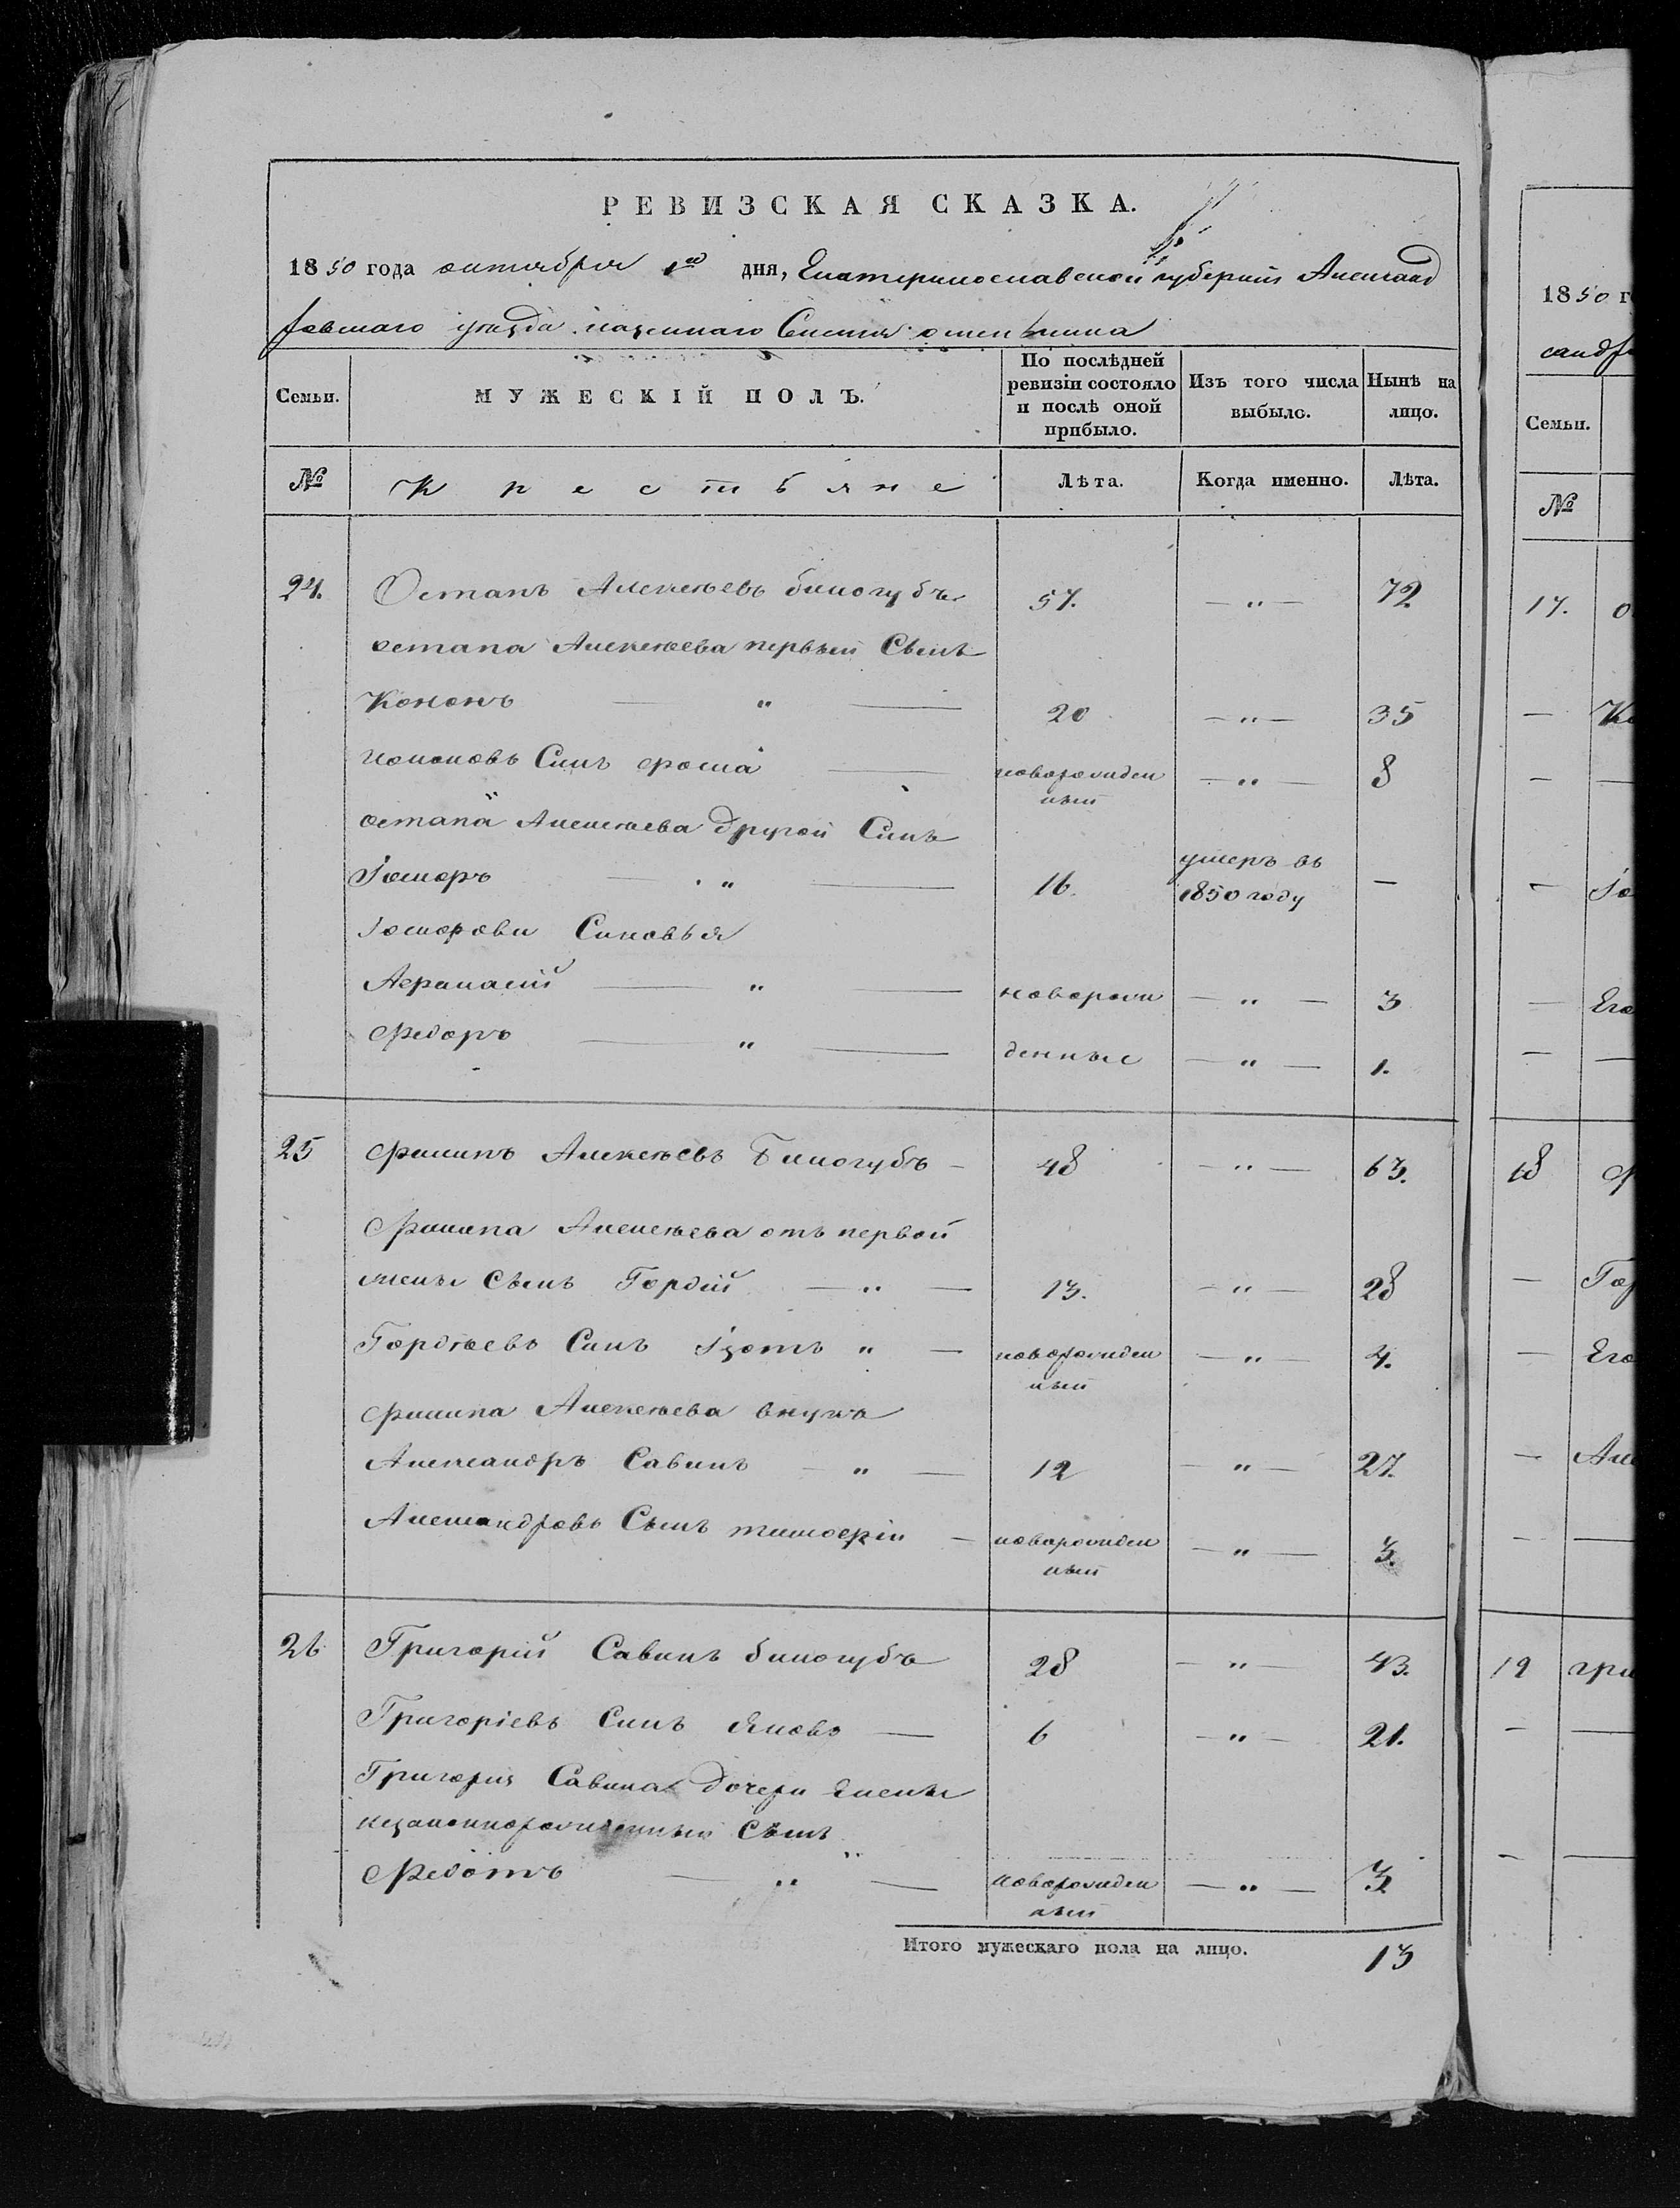 РЕВИЗСКАЯ СКАЗКА.
1850 года октября 1го дня, Екатеринославской губернии Александ
ровскаго уезда казеннаго
Семьи. МУЖЕСКІЙ ПОЛЪ. По послѣдней ревизіи состояло и послѣ оной прибыло. Изъ того числа выбыло. Нынѣ на лицо.
№ Крестьяне Лѣта. Когда именно. Лѣта.
24. Остапъ Алексѣевъ билогубъ 57. — " — 72
остапа Алексѣева первый Сынъ
Кононъ — " — 20 — " — 35
кононовъ Синъ фома — новорожден
ный — " — 8
остапа Алексѣева другой Синъ
Іосифъ — " — 16. умеръ въ
1850 году —
Синовья
Афанасій — " — новорож — " — 3
Федоръ — " — денные — " — 1.
25 Филипъ Алексѣевъ Билогубъ — 48 — " — 63.
Филипа Алексѣева отъ первой
жены Сынъ Гордій — " — 13. — " — 28
Гордѣевъ Синъ Ізотъ " — новорожден
ный — " — 4.
Филипа Алексѣева внукъ
Александръ Савинъ — " — 12 — " — 27.
Александровъ Сынъ тимофій — новорожден
ный — " — 3.
26 Григорій Савинъ билогубъ 28 — " — 43.
Григоріевъ Синъ Яковъ — 6 — " — 21.
Григорія Савина дочери Елены
незаконнорожденный Сынъ
Федотъ — " — новорожден
ный — " — 3
Итого мужескаго пола на лицо. 13
1850 г
Семьи.
№
17.
18
19 гри